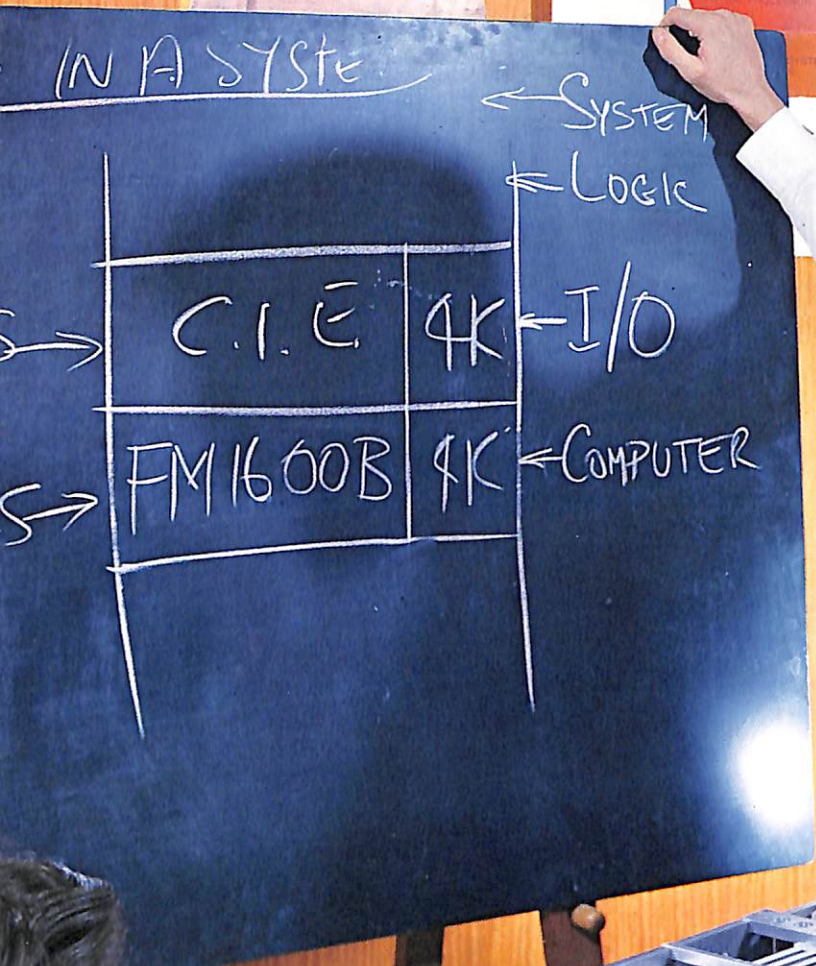 IN A SYSTE
← SYSTEM
← LOGIC
S→ C.I.E. 4K ← I/O
S→ FM1600B 4K ← COMPUTER